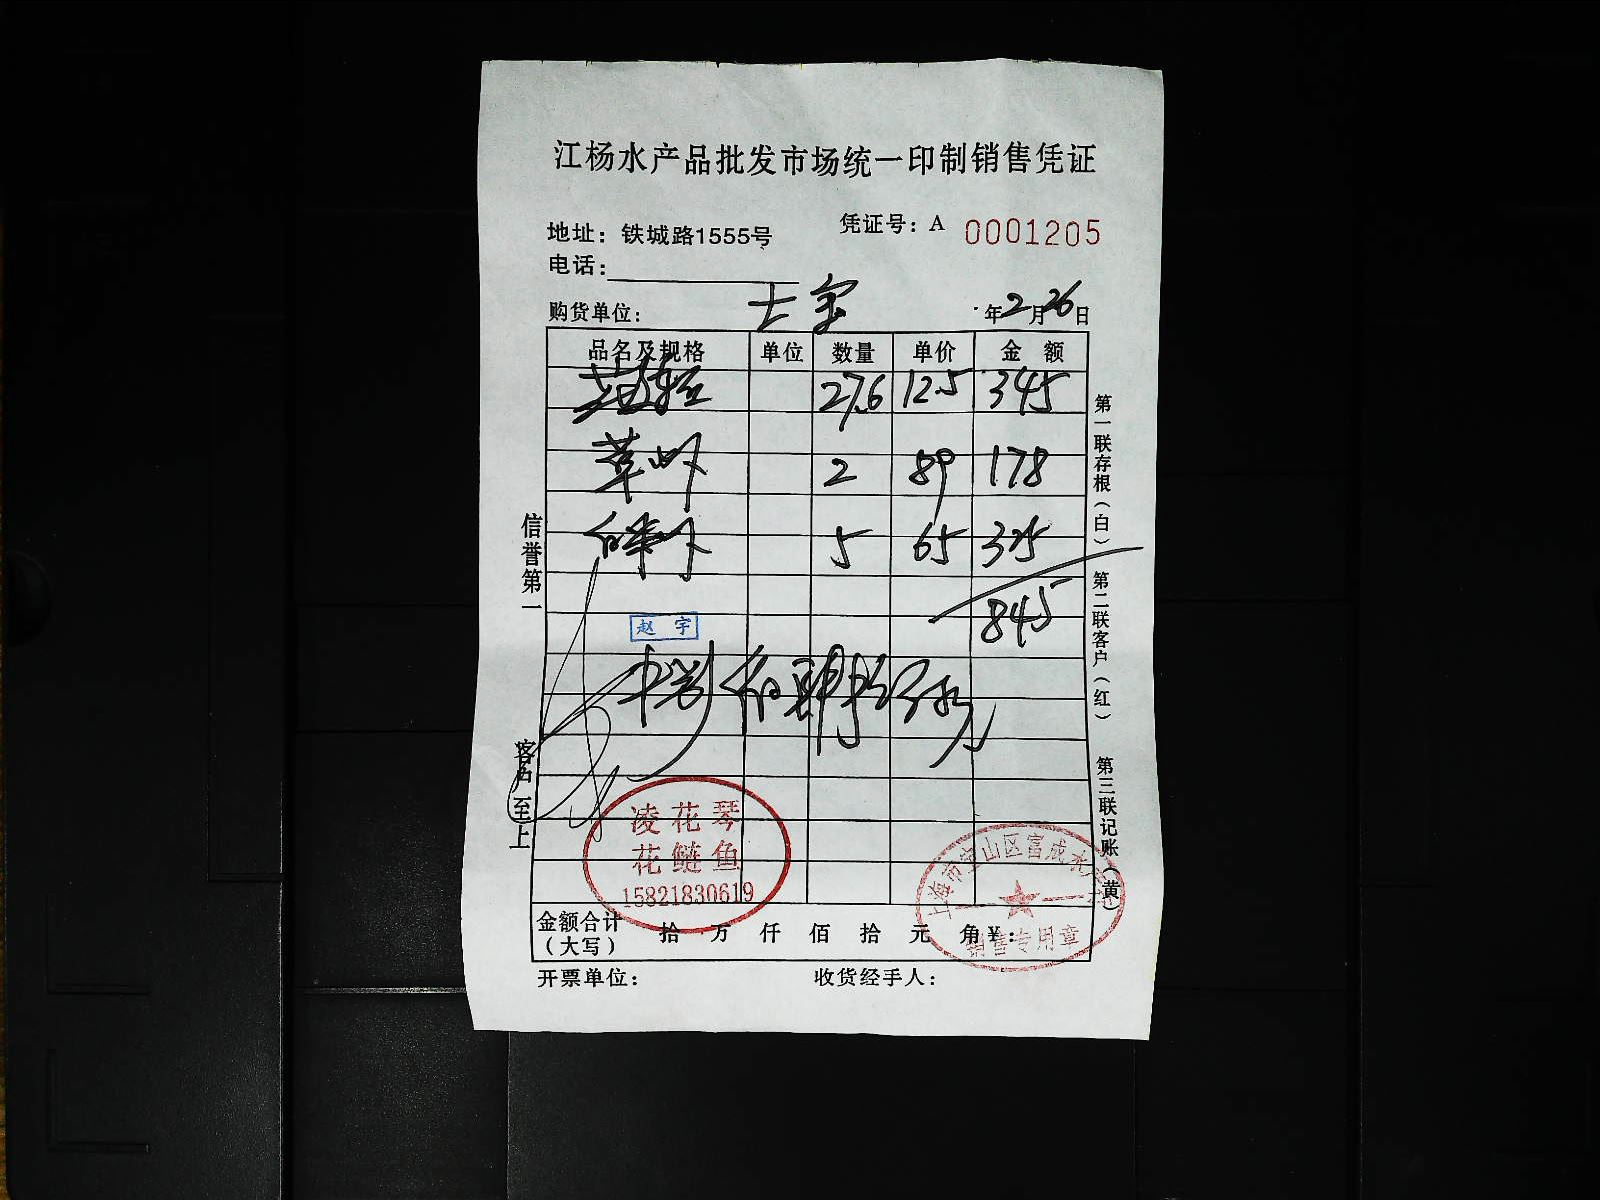 江杨水产品批发市场统一印制销售凭证
地址：铁城路1555号 凭证号：A 0001205
电话：
购货单位： 年2月26日
品名及规格 单位 数量 单价 金额
27.6 12.5 345
草虾 2 89 178
5 65 325
845
赵宇
凌花琴
花鲢鱼
15821830619
上海市宝山区富成水产
销售专用章
金额合计（大写） 拾 万 仟 佰 拾 元 角 ¥：
开票单位： 收货经手人：
信誉第一 客户至上
第一联存根（白） 第二联客户（红） 第三联记账（黄）